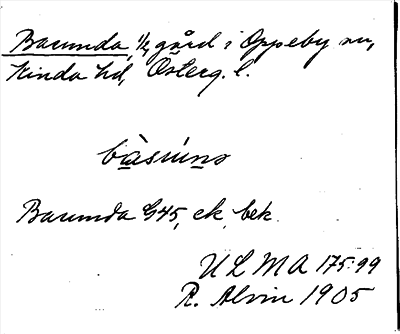 Basunda, 1/4 gård i Oppeby sn,
Kinda hd, Österg. l.
bàsúns
Basunda G45, ek. bek.
ULMA 175:99
R. Alvin 1905